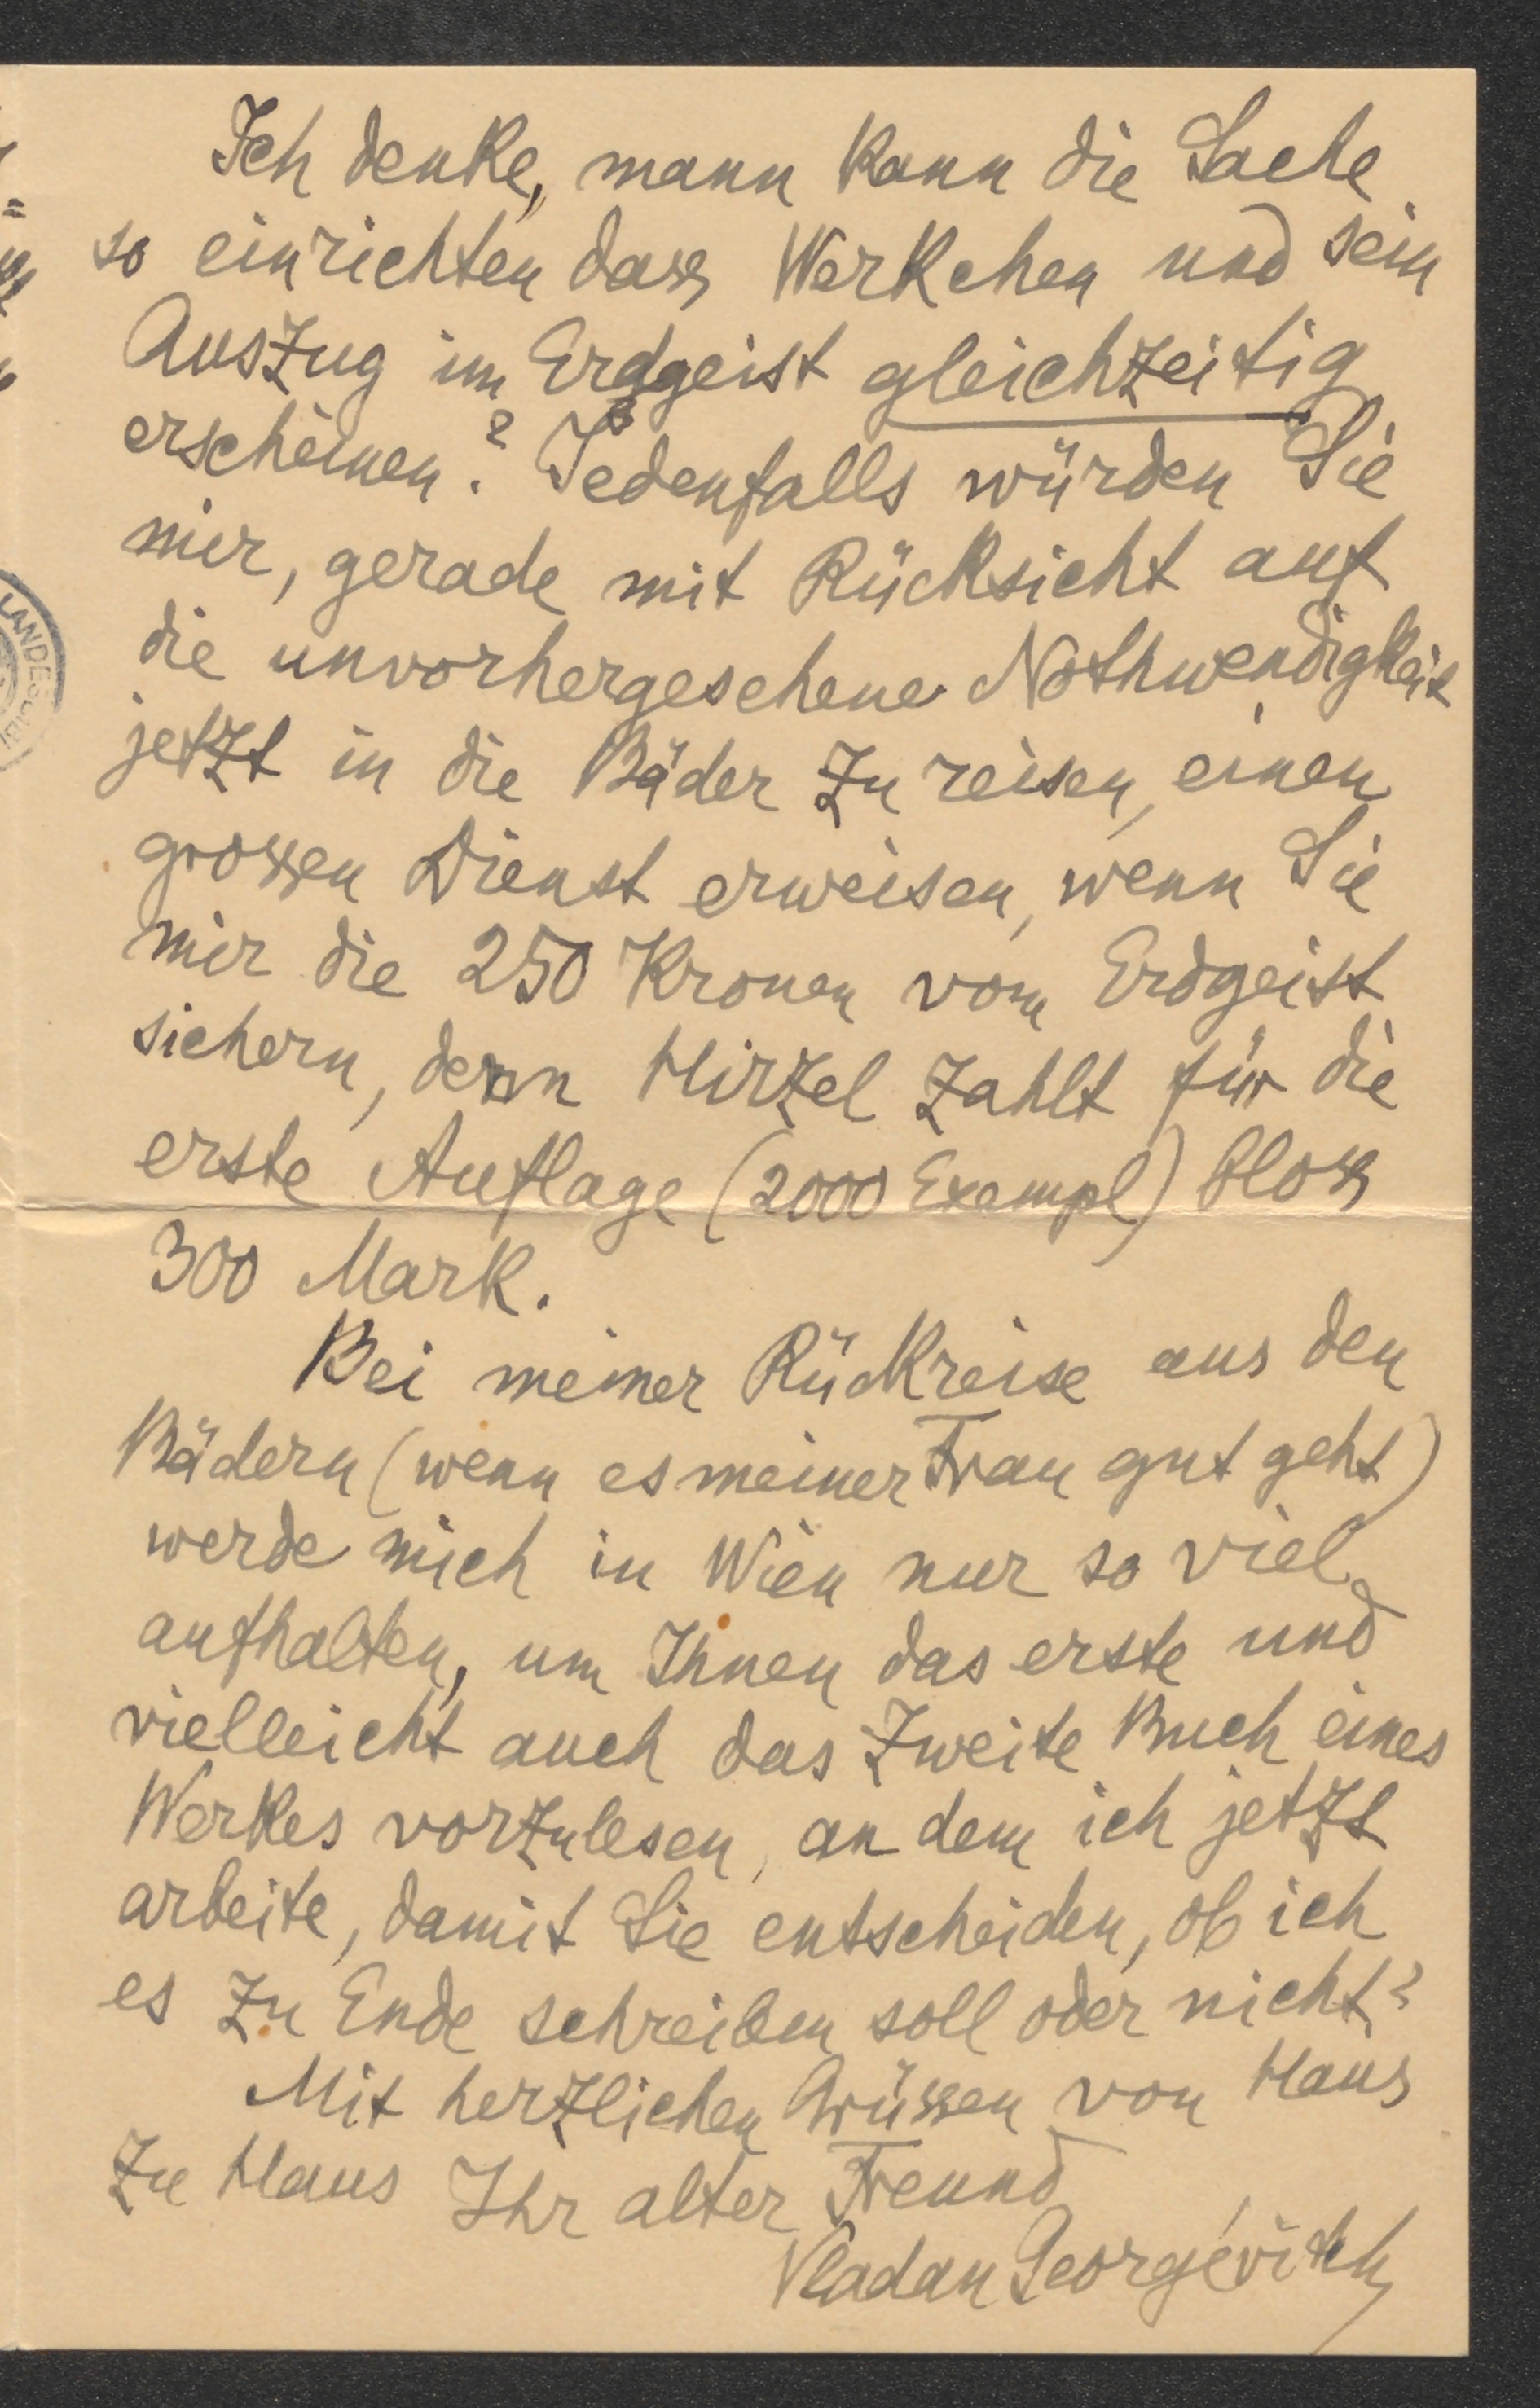 Ich denke, mann kann die Sache
so einrichten dass Werkchen und sein
Auszug im Erdgeist gleichzeitig
erscheinen? Jedenfalls würden Sie
mir, gerade mit Rücksicht auf
die unvorhergesehene Nothwendigkeit
jetzt in die Bäder zu reisen, einen
grossen Dienst erweisen, wenn Sie
mir die 250 Kronen vom Erdgeist
sichern, denn Hirzel zahlt für die
erste Auflage (2000 Exempl) bloss
300 Mark.
Bei meiner Rückreise aus den
Bädern (wenn es meiner Frau gut geht)
werde mich in Wien nur so viel
aufhalten, um Ihnen das erste und
vielleicht auch das zweite Buch eines
Werkes vorzulesen, an dem ich jetzt
arbeite, damit Sie entscheiden, ob ich
es zu Ende schreiben soll oder nicht?
Mit herzlichen Grüssen von Haus
zu Haus Ihr alter Freund
Vladan Georgévitch
LANDES